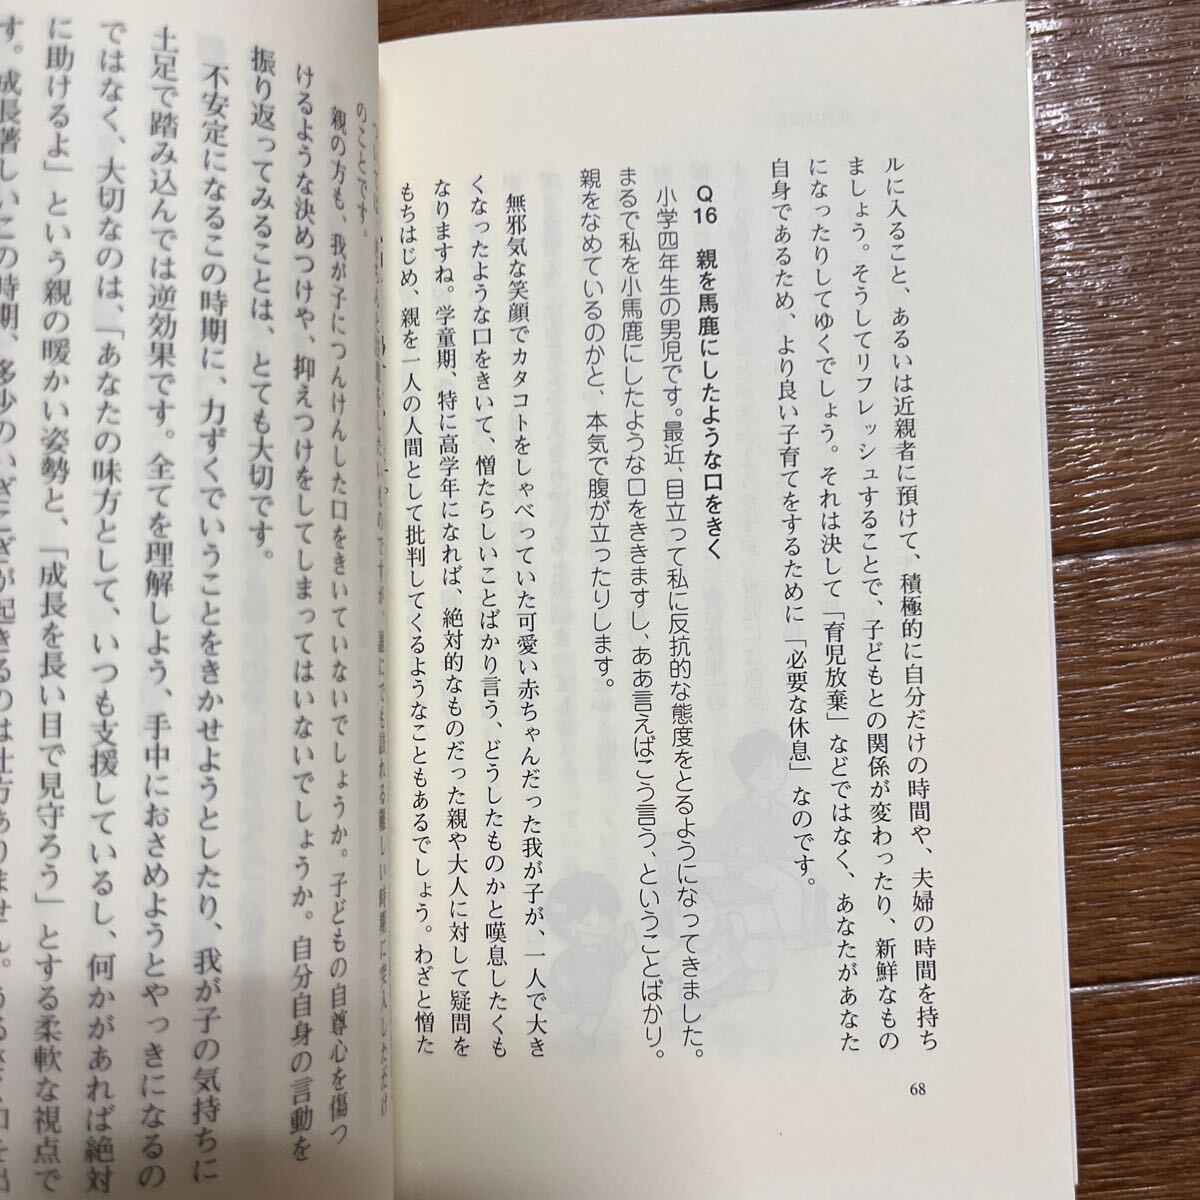 ルに入ること、あるいは近親者に預けて、積極的に自分だけの時間や、夫婦の時間を持ち
ましょう。そうしてリフレッシュすることで、子どもとの関係が変わったり、新鮮なもの
になったりしてゆくでしょう。それは決して「育児放棄」などではなく、あなたがあなた
自身であるため、より良い子育てをするために「必要な休息」なのです。
Q16 親を馬鹿にしたような口をきく
小学四年生の男児です。最近、目立って私に反抗的な態度をとるようになってきました。
まるで私を小馬鹿にしたような口をききますし、ああ言えばこう言う、ということばかり。
親をなめているのかと、本気で腹が立ったりします。
無邪気な笑顔でカタコトをしゃべっていた可愛い赤ちゃんだった我が子が、一人で大き
くなったような口をきいて、憎たらしいことばかり言う、どうしたものかと嘆息したくも
なりますね。学童期、特に高学年になれば、絶対的なものだった親や大人に対して疑問を
もちはじめ、親を一人の人間として批判してくるようなこともあるでしょう。わざと憎た
68
のことです。
親の方も、我が子につんけんした口をきいていないでしょうか。子どもの自尊心を傷つ
けるような決めつけや、抑えつけをしてしまってはいないでしょうか。自分自身の言動を
振り返ってみることは、とても大切です。
不安定になるこの時期に、力ずくでいうことをきかせようとしたり、我が子の気持ちに
土足で踏み込んでは逆効果です。全てを理解しよう、手中におさめようとやっきになるの
ではなく、大切なのは、「あなたの味方として、いつも支援しているし、何かがあれば絶対
に助けるよ」という親の暖かい姿勢と、「成長を長い目で見守ろう」とする柔軟な視点で
す。成長著しいこの時期、多少のいざこざが起きるのは仕方ありません。